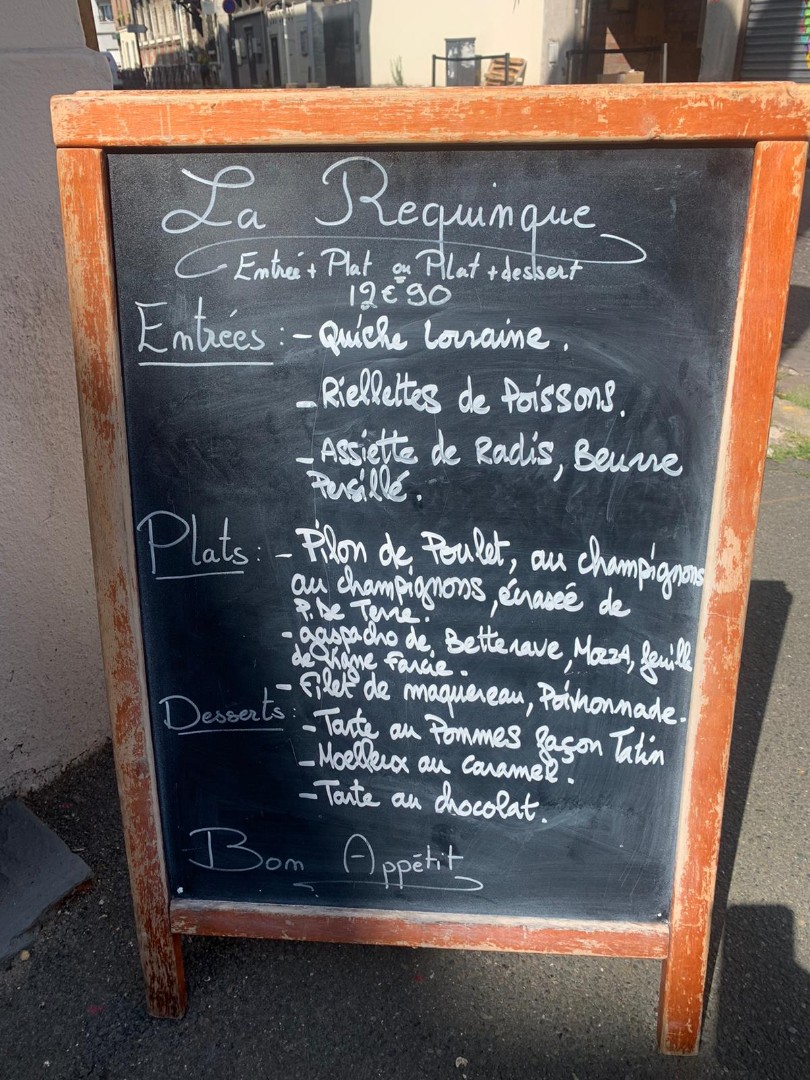 La Requinque
Entrée + Plat ou Plat + dessert
12€90
Entrées : - Quiche Lorraine.
- Riellettes de Poissons.
- Assiette de Radis, Beurre
Persillé.
Plats : - Pilon de Poulet, au champignons
au champignons, écrasée de
P. De Terre.
- gaspacho de Betterave, MozzA, feuille
de vigne farcie.
- Filet de maquereau, Poivronnade.
Desserts :
- Tarte au Pommes façon Tatin
- Moelleux au caramel.
- Tarte au chocolat.
Bon Appétit